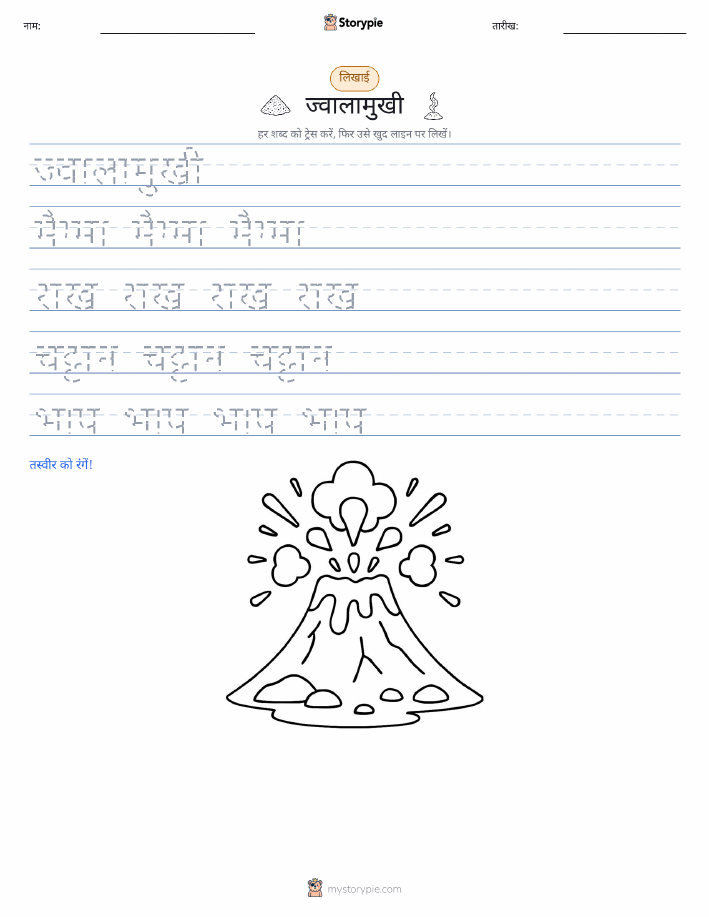 नाम: Storypie तारीख:
लिखाई
ज्वालामुखी
हर शब्द को ट्रेस करें, फिर उसे खुद लाइन पर लिखें।
ज्वालामुखी
मैग्मा मैग्मा मैग्मा
राख राख राख राख
चट्टान चट्टान चट्टान
भाप भाप भाप भाप
तस्वीर को रंगें!
mystorypie.com